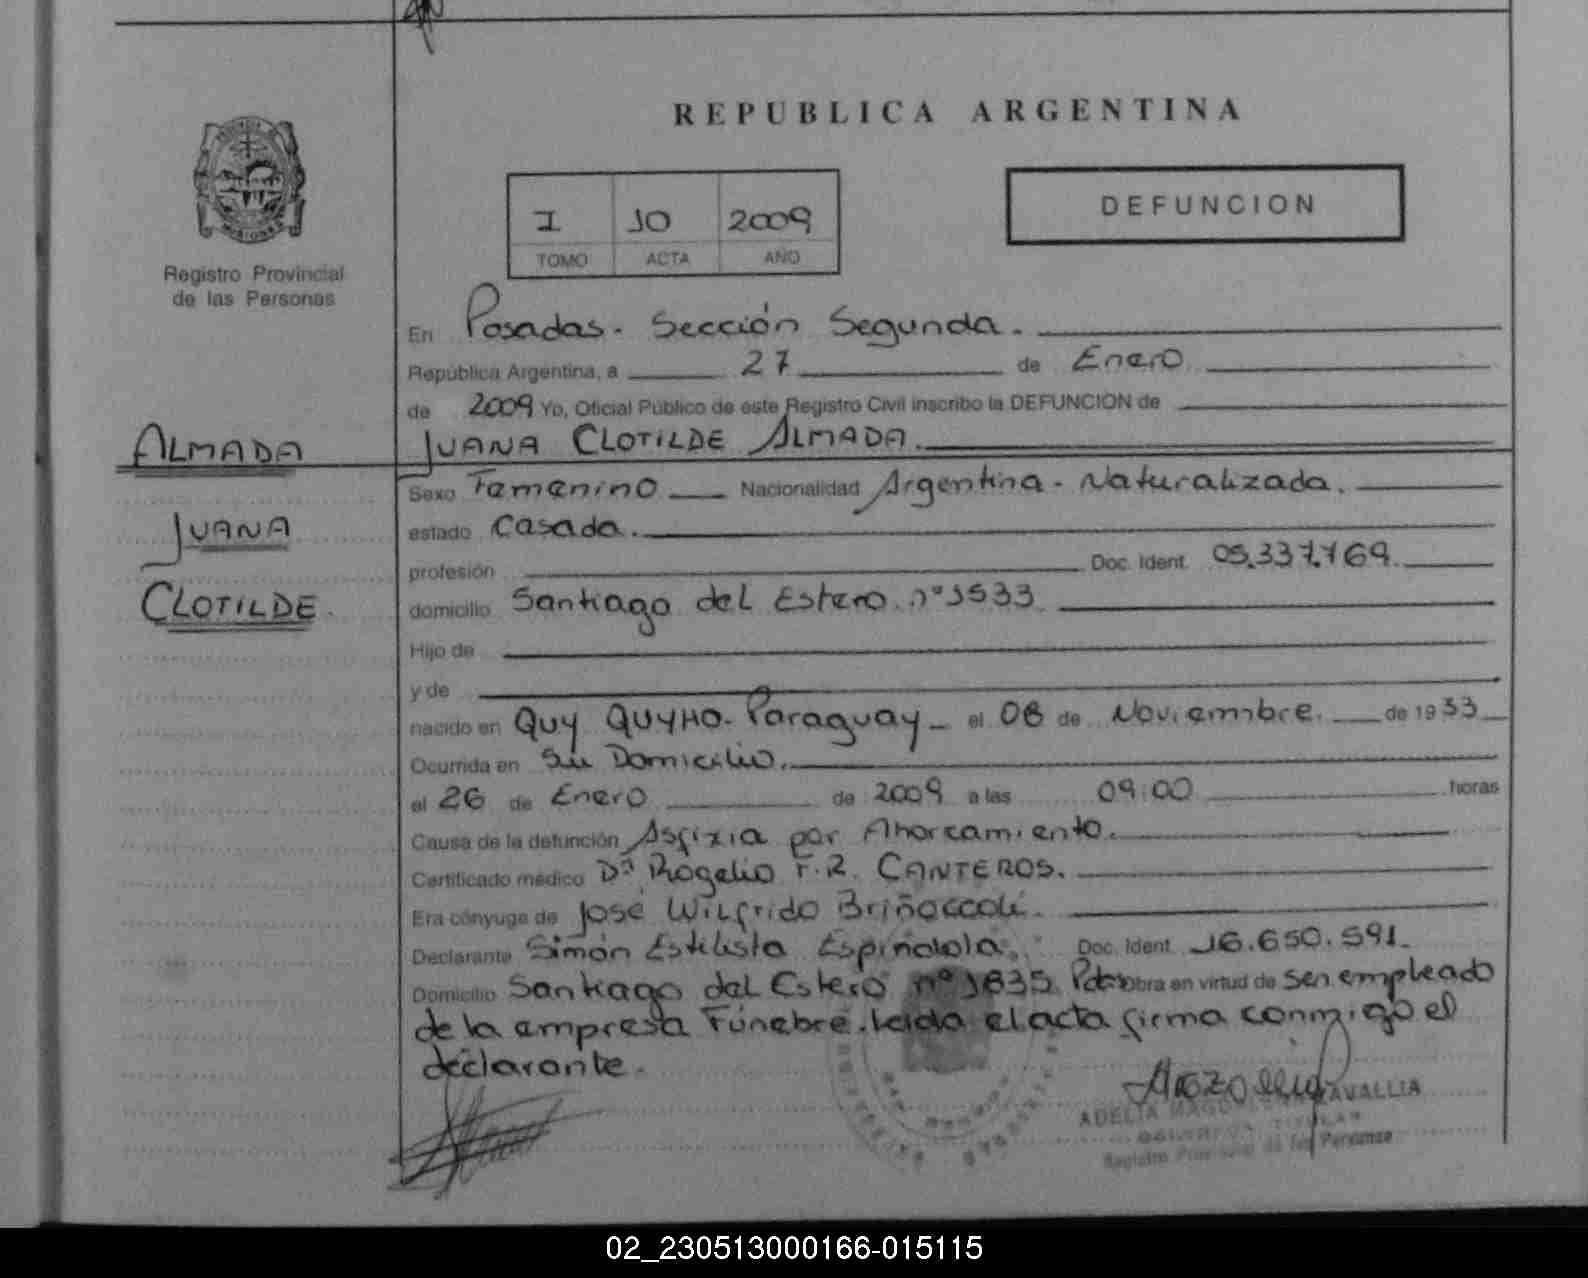 REPUBLICA ARGENTINA
I JO 2009
TOMO ACTA AÑO
DEFUNCION
Registro Provincial
de las Personas
En Posadas. Sección Segunda.
República Argentina, a 27 de Enero
de 2009 Yo, Oficial Público de este Registro Civil inscribo la DEFUNCION de
ALMADA
JUANA CLOTILDE ALMADA.
Sexo Femenino Nacionalidad Argentina - Naturalizada.
JUANA
estado Casada.
profesión Doc. Ident. 05.337.769.
CLOTILDE.
domicilio Santiago del Estero nº 1533
Hijo de
y de
nacido en QUY QUYHO - Paraguay - el 08 de Noviembre de 1933
Ocurrida en Su Domicilio.
el 26 de Enero de 2009 a las 09:00 horas
Causa de la defunción Asfixia por Ahorcamiento.
Certificado médico Dr. Rogelio F.R. CANTEROS.
Era cónyuge de José Wilfrido Briñoccoli.
Declarante Simón Estilista Espíndola. Doc. Ident. 16.650.591.
Domicilio Santiago del Estero nº 1835 Pdas Obra en virtud de ser empleado
de la empresa Fúnebre. Leida el acta firma conmigo el
declarante.
AVALLIA
ADELIA
TITULAR
Registro Provincial de las Personas
02_230513000166-015115